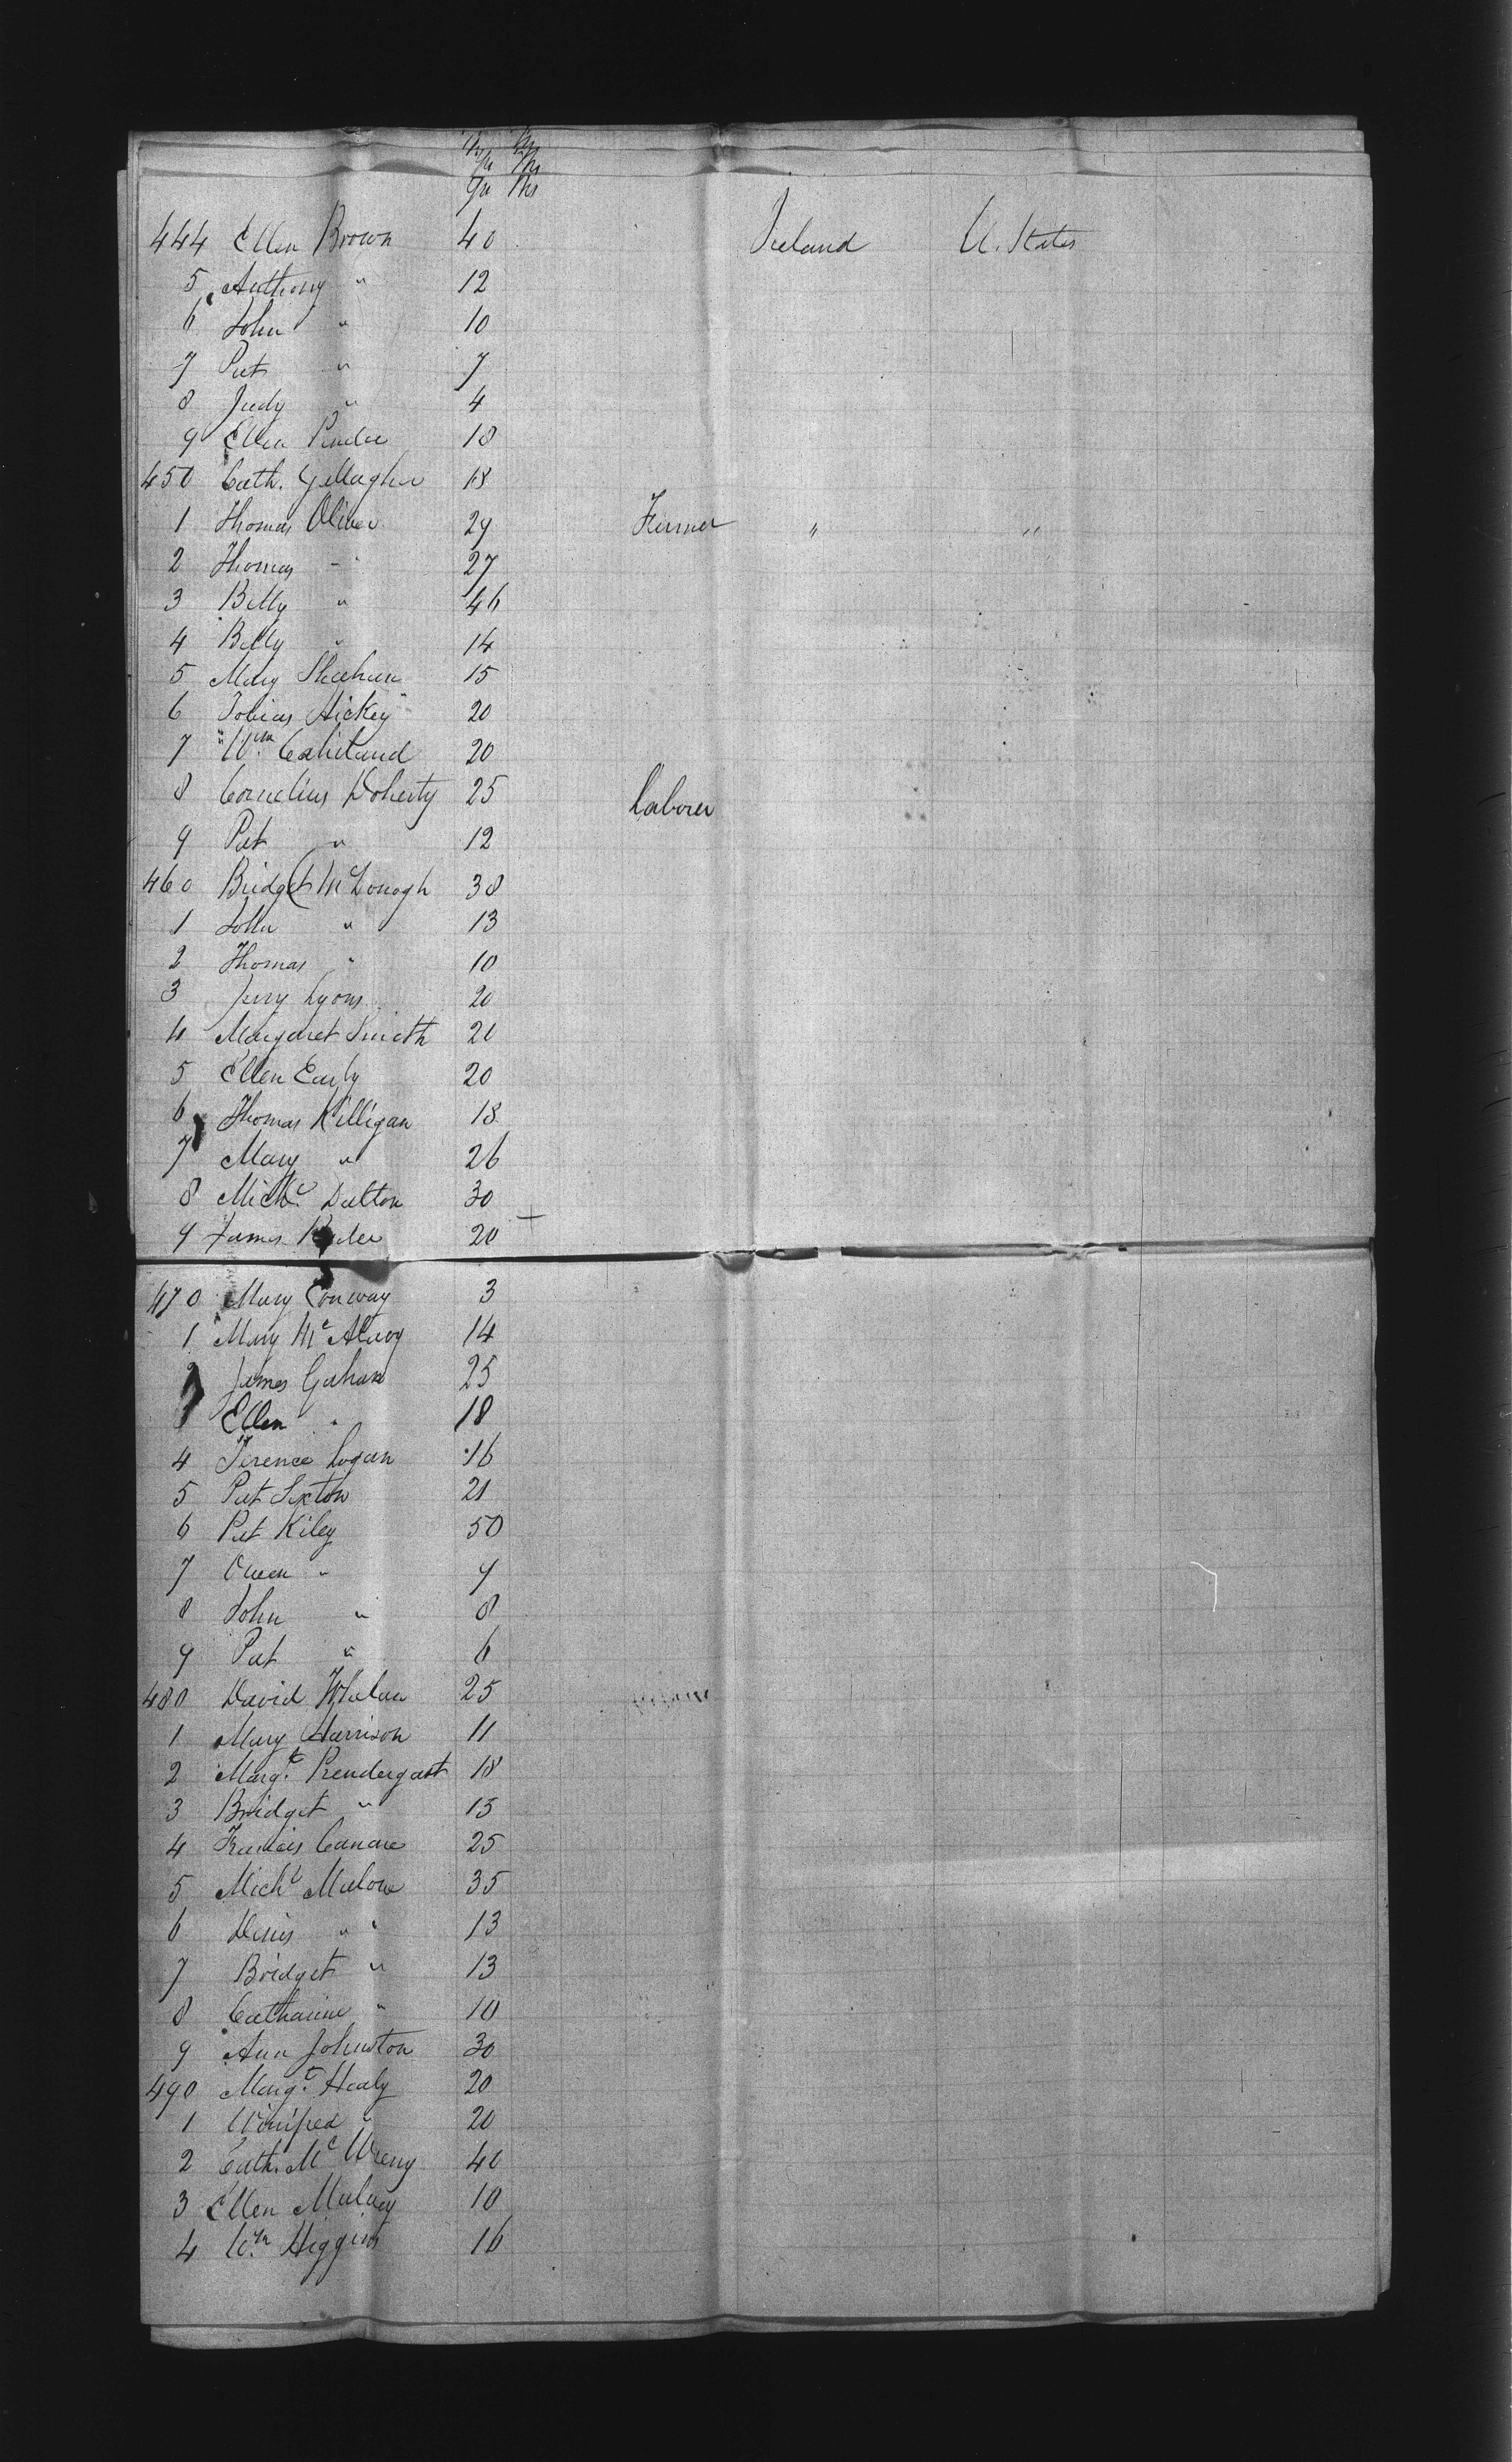 444 Ellen Brown 40 Ireland U. States
5 Anthony " 12
6 John " 10
7 Pat " 7
8 Judy " 4
9 Ellen 18
450 Cath. Gallagher 18
1 Thomas Oliver 29 Farmer " "
2 Thomas " 27
3 Betty " 46
4 Betty " 14
5 Mary Sheehan 15
6 Tobias Hickey 20
7 Wm. 20
8 Cornelius Doherty 25 Laborer
9 Pat " 12
460 Bridget McDonogh 38
1 John " 13
2 Thomas " 10
3 Jerry Lyons 20
4 Margaret Smith 20
5 Ellen Early 20
6 Thomas Killigan 18
7 Mary " 26
8 Michl. Dalton 30
9 James 20 +
470 Mary Conway 3
1 Mary Mc 14
2 James Gahan 25
Ellen " 18
4 Terence Logan 16
5 Pat Sexton 21
6 Pat Kiley 50
7 Owen " 9
8 John " 8
9 Pat " 6
480 David Whelan 25
1 Mary Harrison 11
2 Margt. Prendergast 18
3 Bridget " 15
4 Francis 25
5 Michl Malone 35
6 Denis " " 13
7 Bridget " 13
8 Catharine " 10
9 Ann Johnston 30
490 Margt. Healy 20
1 Winifred " 20
2 Cath. Mc 40
3 Ellen 10
4 Wm. Higgins 16